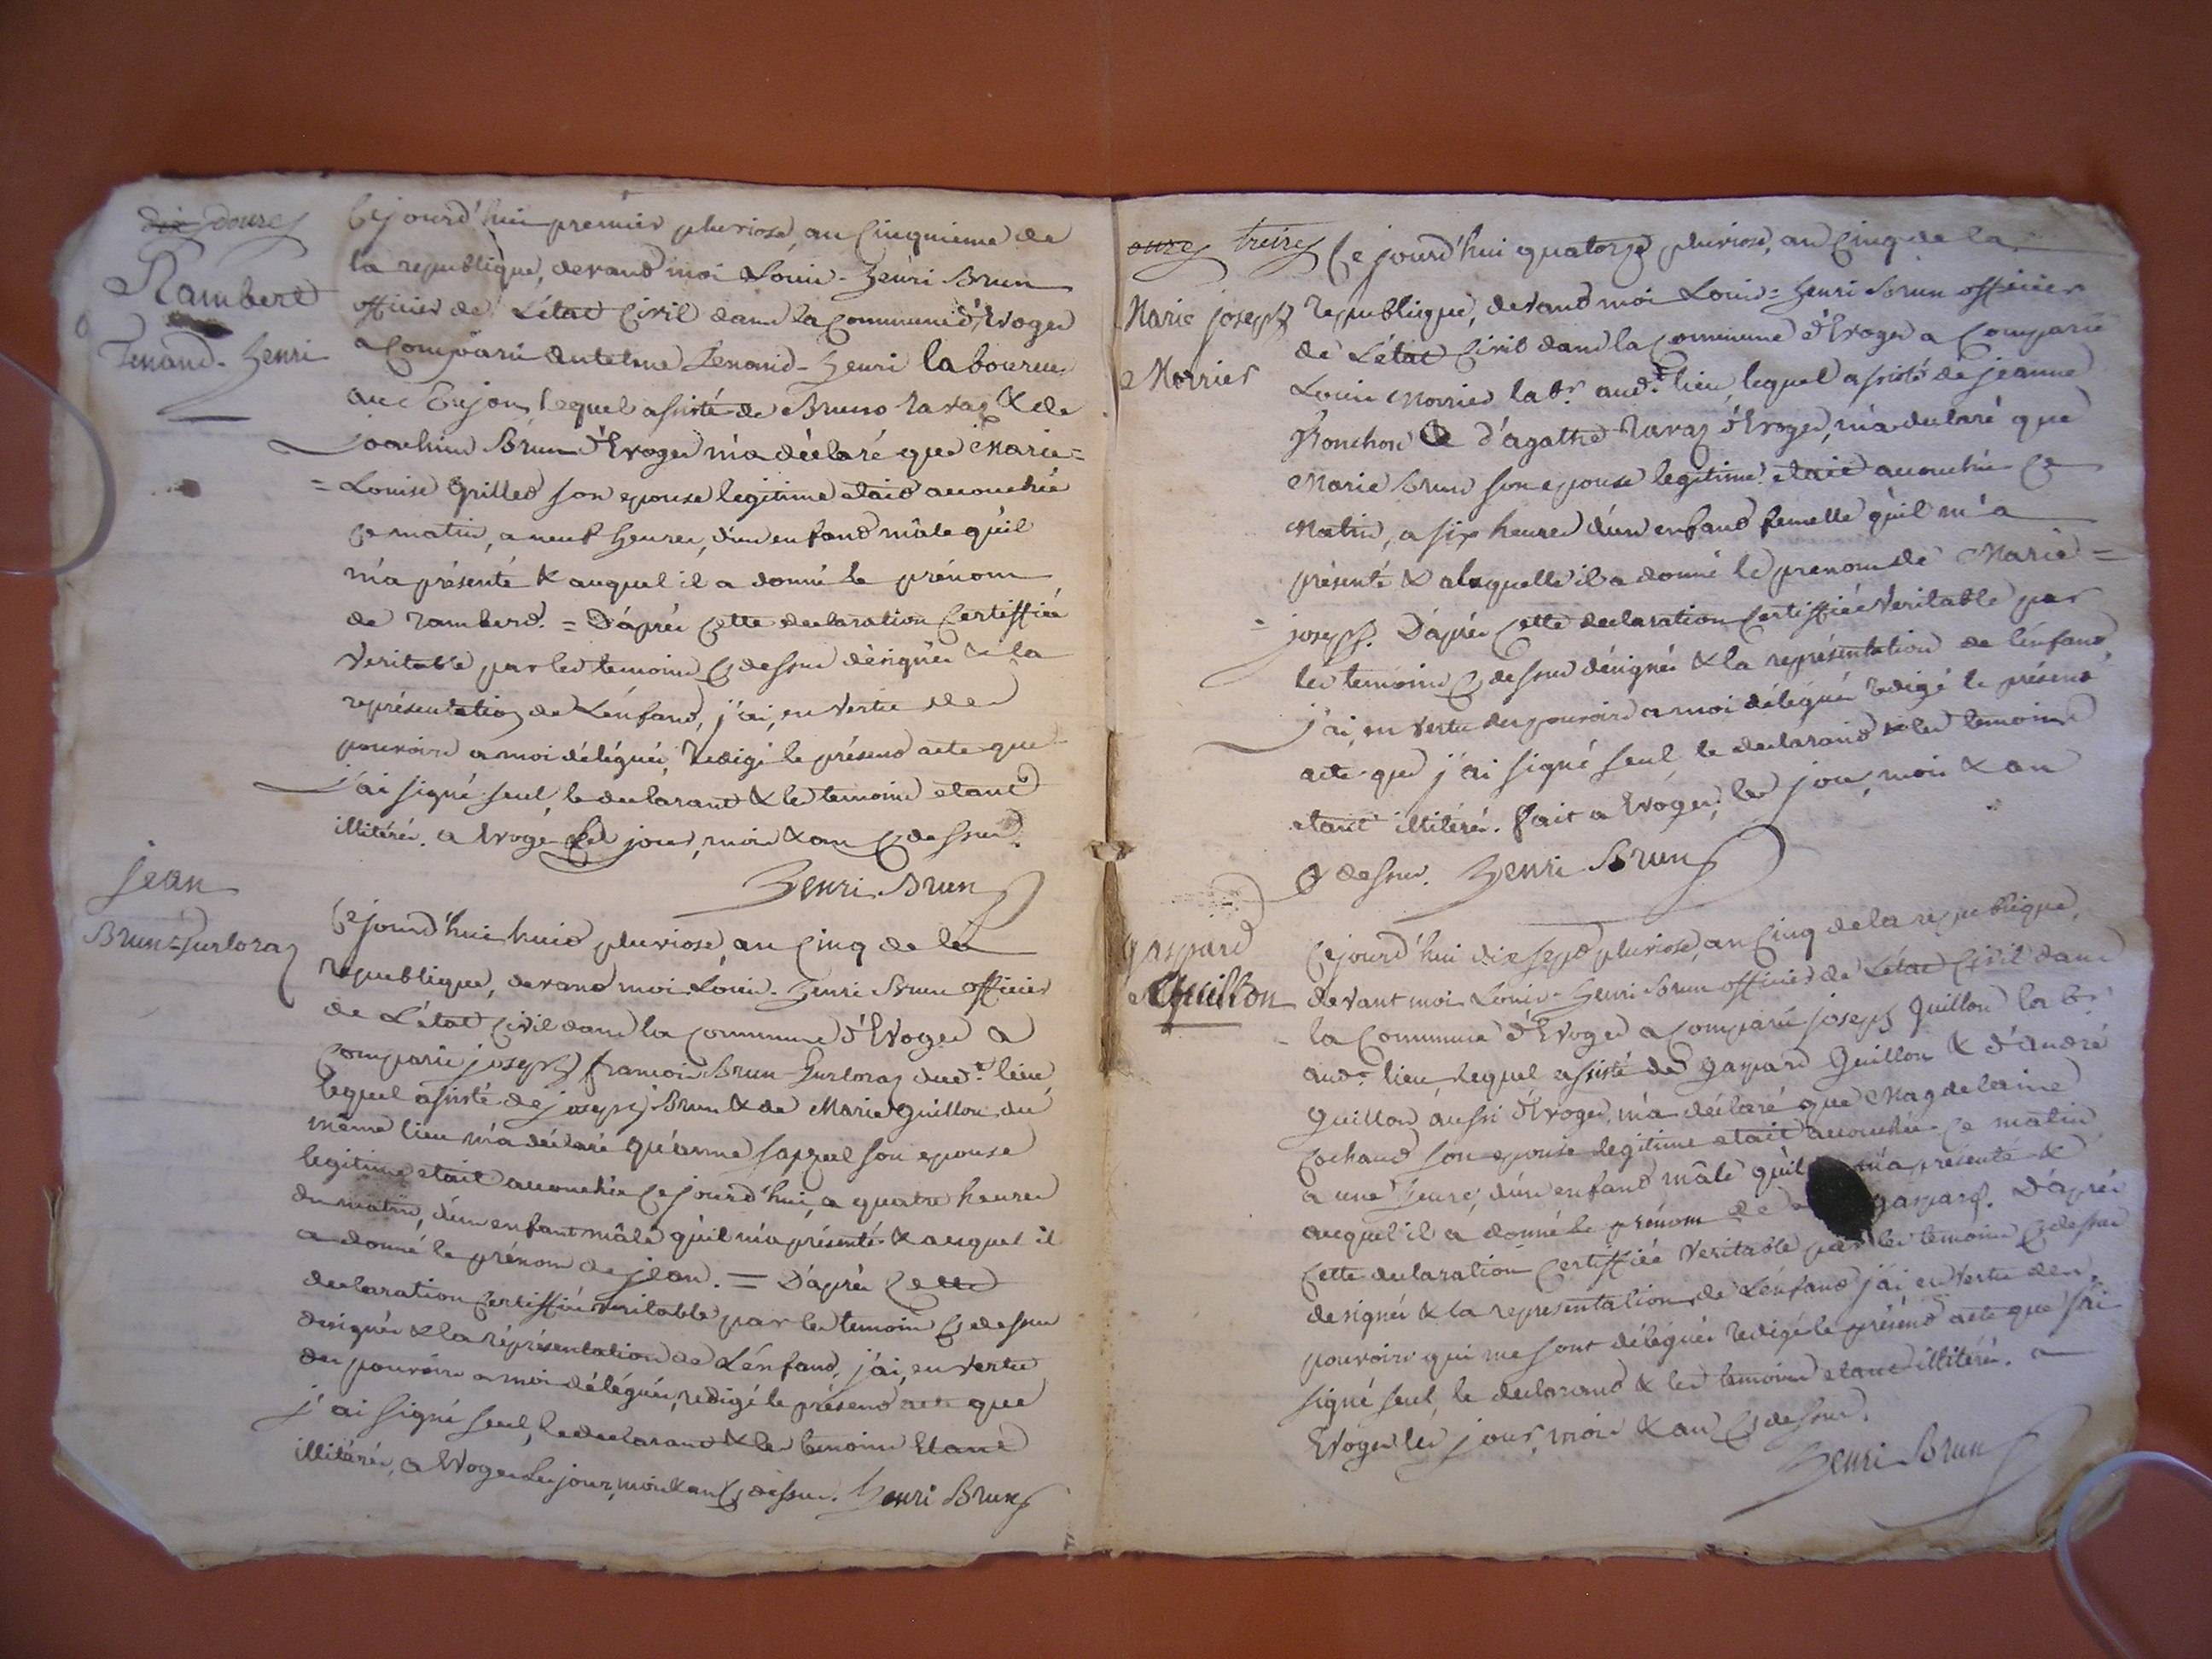 dix douze
Rambert
Tenand-henri
Cejourd'hui premier pluviose, an cinquieme de
la republique, devand moi Louis-henri Brun
officier de L'état civil dans la commune d'Evoges
a comparu antelme Tenand-henri laboureur
au Soujon, lequel assisté de Bruno ravaz & de
joachim Brun d'Evoges m'a déclaré que Marie=
=Louise Grilled son epouse legitime etaid accouchée
ce matin, a neuf heures, d'un enfand mâle qu'il
m'a présenté & auquel il a donné le prénom
de ramberd. = D'aprés cette declaration certiffiée
veritable par les temoins cy dessus désignés & la
représentation de L'énfand, j'ai, en vertu des
pouvoirs a moi délégués, redigé le présend acte que
j'ai signé seul, le declarant & les temoins etant
illitérés. a Evoge les jour, mois & an cy dessus.
henri Brun
jean
Brun-Surloraz
Cejourd'hui huid pluviose, an cinq de la
republique, devand moi Louis-henri Brun officier
de L'état civil dans la commune d'Evoges a
comparu joseph francois Brun-Surloraz dud.t lieu,
lequel assisté de joseph Brun & de Marie guillon du
même lieu m'a déclaré qu'anne sappel son epouse
legitime etait accouchée cejourd'hui, a quatre heures
du matin, d'un enfant mâle qu'il m'a présenté & auquel il
a donné le prénom de jean. = D'aprés cette
declaration certiffiée veritable par les temoins cy dessus
designés & la réprésentation de L'énfand, j'ai, en vertu
des pouvoirs a moi délégués, redigé le présend acte que
j'ai signé seul, le declarand & les temoins Etant
illitérés, a Evoges les jour, mois & an cy dessus. henri Brun
onze treize
Marie joseph
Morrier
Ce jourd'hui quatorze pluviose, an cinq de la
republique, devand moi Louis=henri Brun officier
de L'état civil dans la commune d'Evoges a comparu
Louis Morrier lab.r aud.t lieu, lequel assisté de jeanne
Ponchon & d'agathe ravaz d'Evoges, m'a declaré que
Marie Brun son epouse legitime etait accouchée ce
matin, a six heures d'un enfand femelle qu'il m'a
présenté & alaquelle il a donné le prenom de Marie=
=joseph. D'aprés cette declaration certiffiée veritable par
les temoins cy dessus désignés & la représentation de l'énfand,
j'ai, en vertu des pouvoirs a moi délégués redigé le présend
acte que j'ai signé seul, le declarand & les temoins
etant illitérés. fait a Evoges, les jour, mois & an
cy dessus. henri Brun
gaspard
Guillon
Cejourd'hui dix sepd pluviose, an cinq de la republique,
devant moi Louis-henri Brun officier de L'état civil dans
la Commune d'Evoges a comparu joseph guillon lab.r
aud.t lieu lequel assisté de gaspard Guillon & d'andré
guillon aussi d'Evoges, m'a déclaré que Magdelaine
Cochand son epouse legitime etait accouchée ce matin
a une heure, d'un enfand mâle qu'il m'a présenté &
auquel il a donné le prénom de gaspard. D'aprés
cette declaration certiffiée veritable par les temoins cy dessus
designés & la representation de L'énfand j'ai, en vertu des
pouvoirs qui me sont délégués redigé le présend acte que j'ai
signé seul, le declarand & les temoins etant illitérés. a
Evoges les jour, mois & an cy dessus.
henri Brun